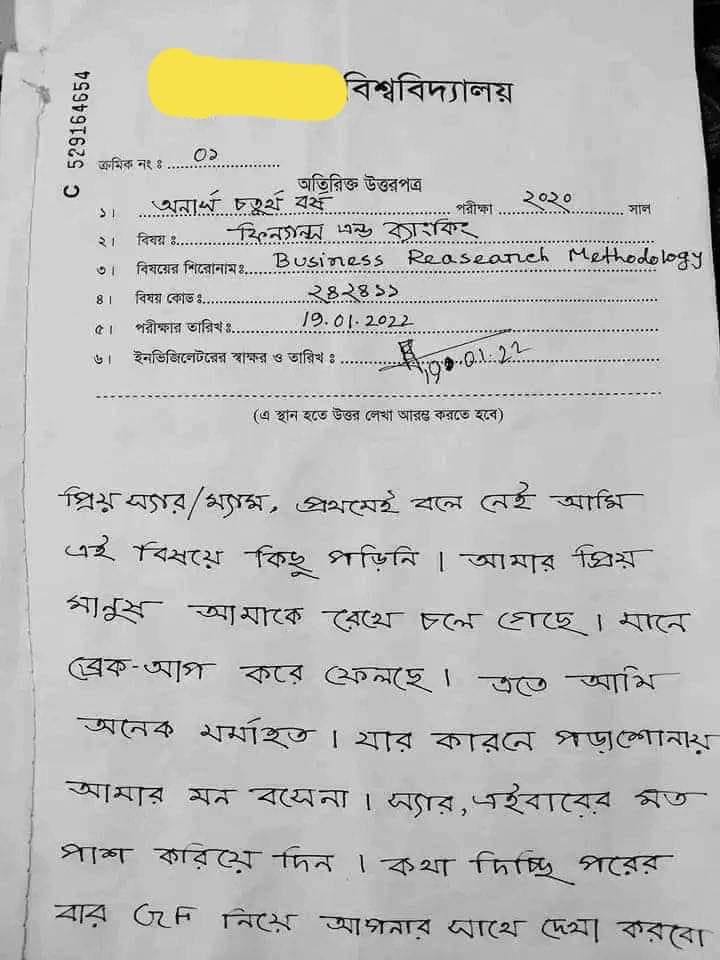 বিশ্ববিদ্যালয়
C 529164654
ক্রমিক নং ঃ ০১
অতিরিক্ত উত্তরপত্র
১। অনার্স চতুর্থ বর্ষ পরীক্ষা ২০২০ সাল
২। বিষয় ঃ ফিন্যান্স এন্ড ব্যাংকিং
৩। বিষয়ের শিরোনাম ঃ Business Reasearch Methodology
৪। বিষয় কোড ঃ ২৪২৪১১
৫। পরীক্ষার তারিখ ঃ 19.01.2022
৬। ইনভিজিলেটরের স্বাক্ষর ও তারিখ ঃ 19.01.22
(এ স্থান হতে উত্তর লেখা আরম্ভ করতে হবে)
প্রিয় স্যার/ম্যাম, প্রথমেই বলে নেই আমি
এই বিষয়ে কিছু পড়িনি। আমার প্রিয়
মানুষ আমাকে রেখে চলে গেছে। মানে
ব্রেক-আপ করে ফেলছে। এতে আমি
অনেক মর্মাহত। যার কারনে পড়াশোনায়
আমার মন বসেনা। স্যার, এইবারের মত
পাশ করিয়ে দিন। কথা দিচ্ছি পরের
বার GF নিয়ে আপনার সাথে দেখা করবো